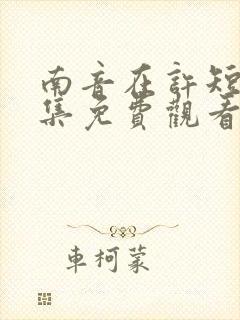 南音在許短
集免費觀看
車柯蒙